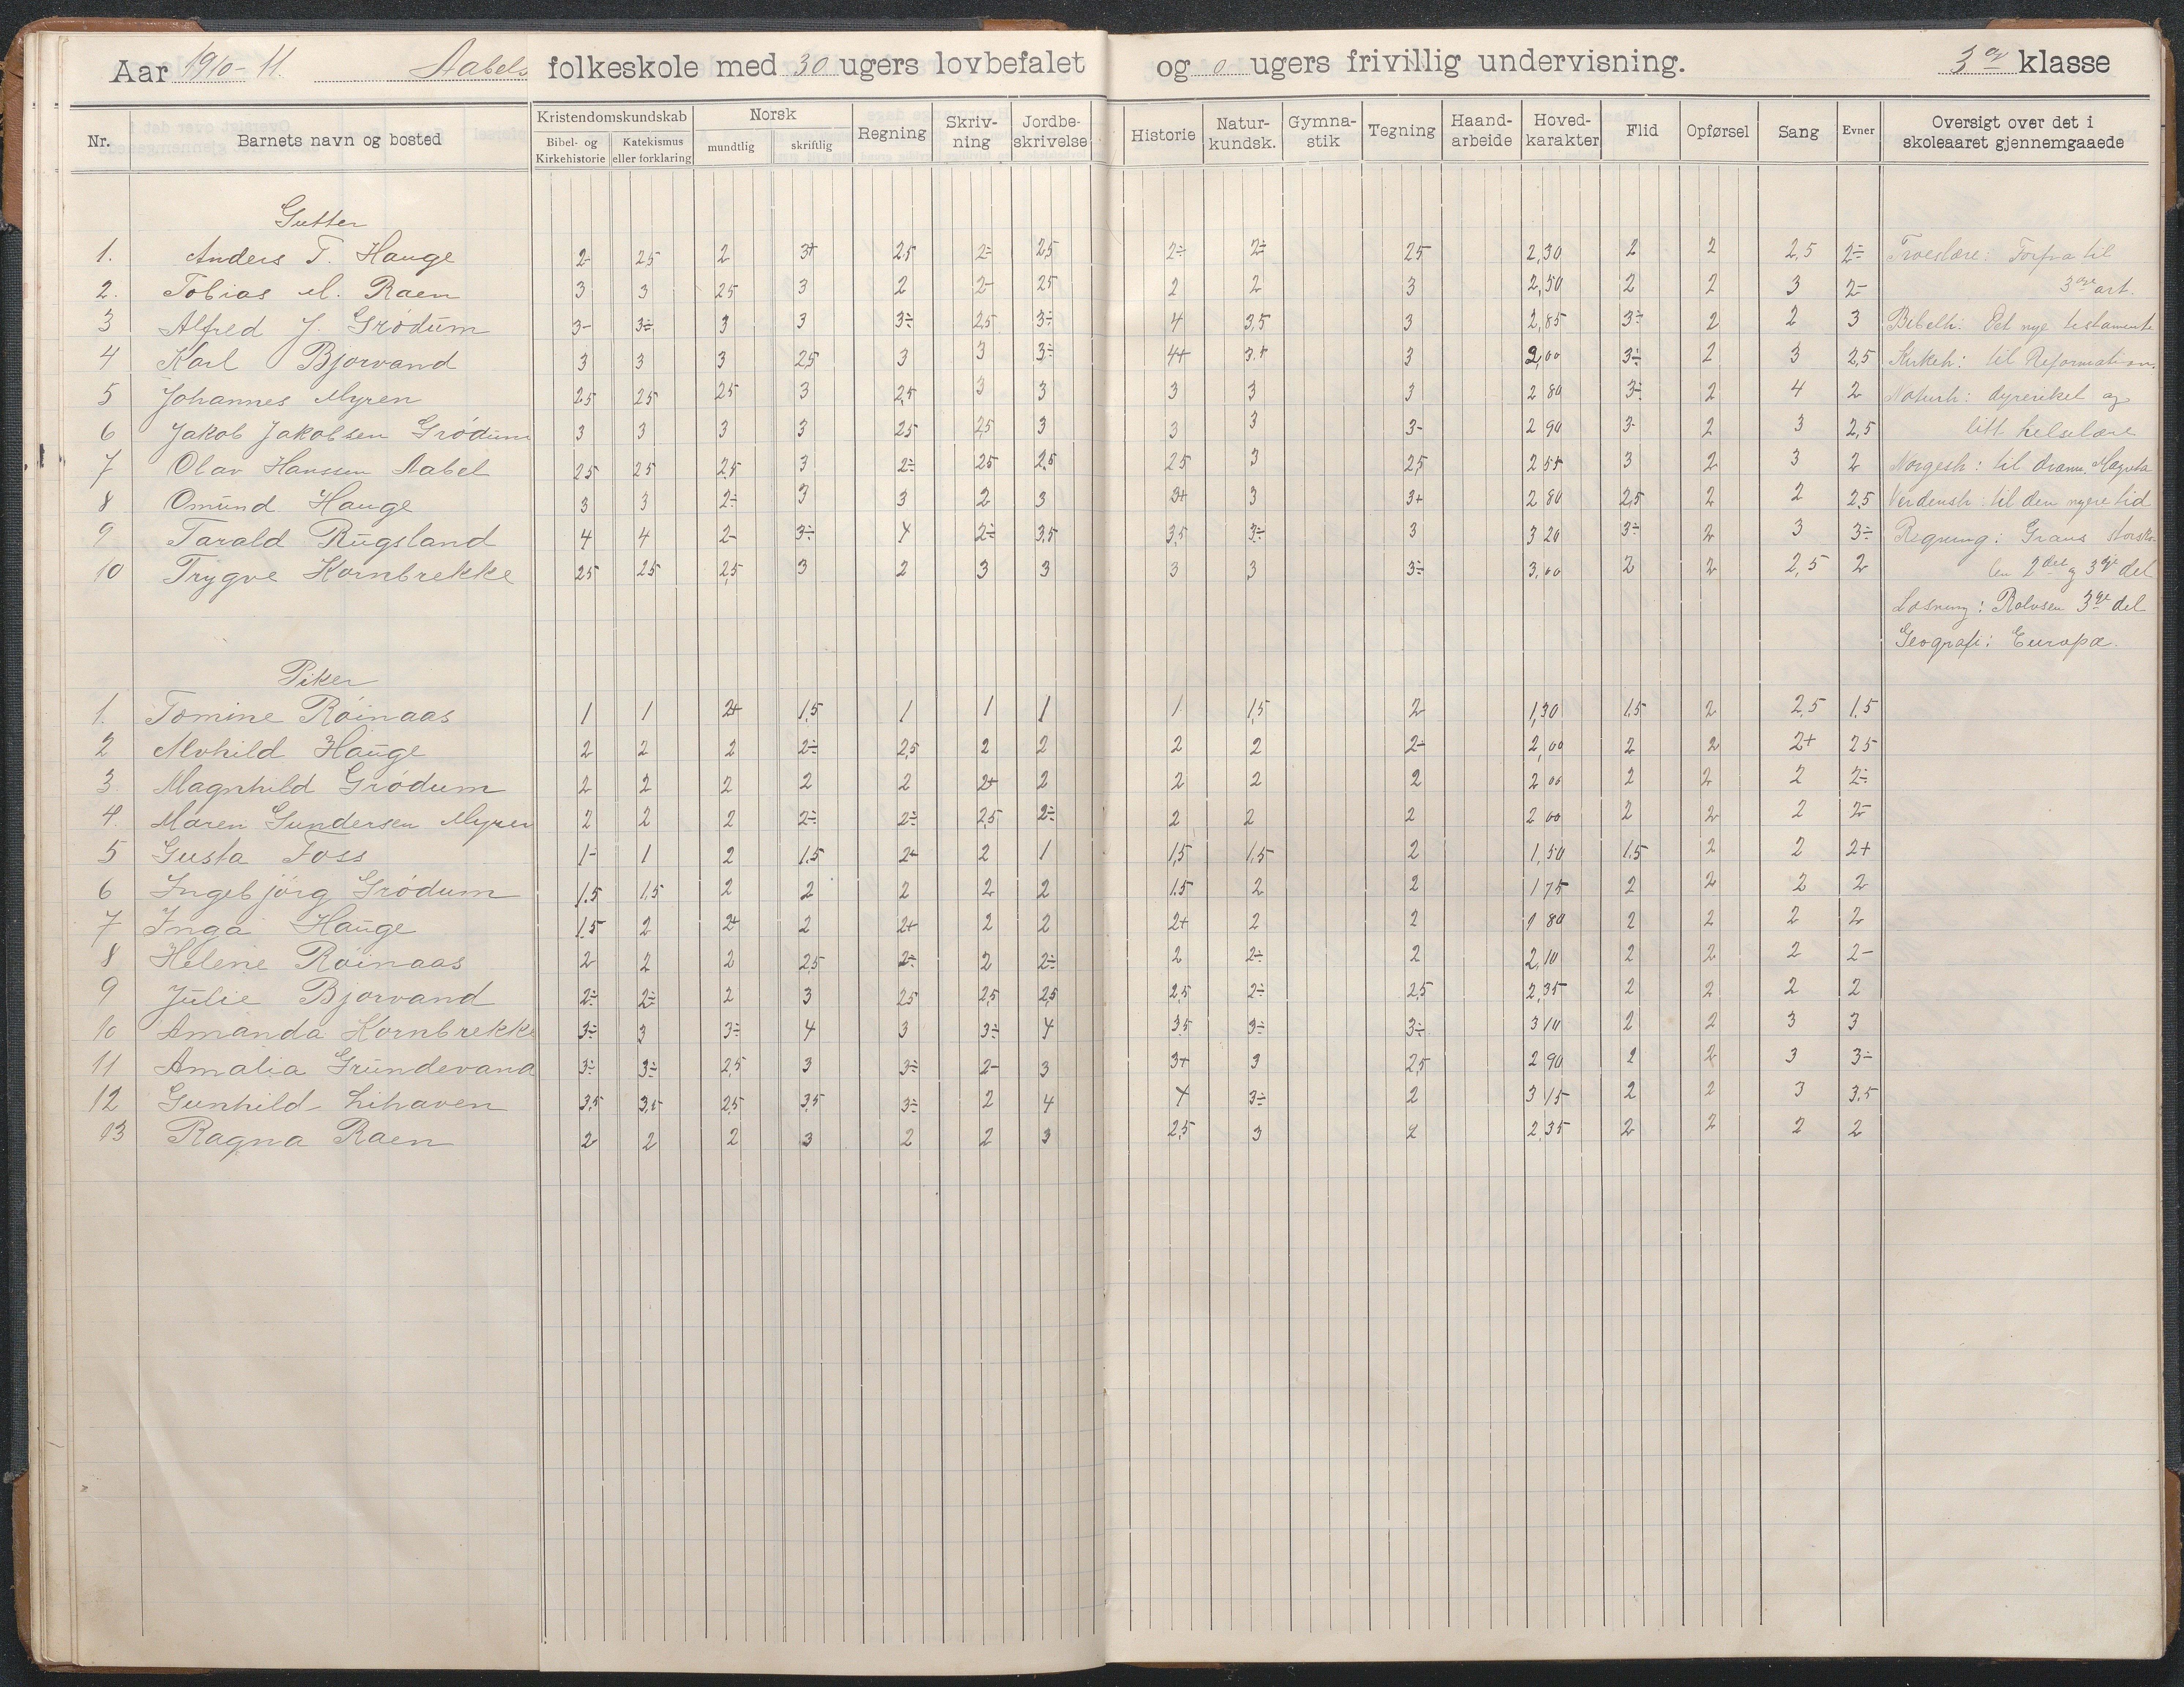 Aar 1910-11. Aabels folkeskole med 30 ugers lovbefalet og 0 ugers frivillig undervisning. 3die klasse
Nr. Barnets navn og bosted Kristendomskundskab Bibel- og Kirkehistorie Katekismus eller forklaring Norsk mundtlig skriftlig Regning Skriv-ning Jordbe-skrivelse Historie Natur-kundsk. Gymna-stik Tegning Haand-arbeide Hoved-karakter Flid Opførsel Sang Evner Oversigt over det i skoleaaret gjennemgaaede
Gutter
1. Anders T. Hauge 2- 25 2 3+ 2,5 2- 2,5 2÷ 2÷ 25 2,30 2 2 2,5 2÷ Troeslære: Forfra til
2. Tobias M. Raen 3 3 25 3 2 2- 25 2 2 3 2,50 2 2 3 2- 3die art.
3 Alfred J. Grödum 3- 3÷ 3 3 3÷ 2,5 3÷ 4 3,5 3 2,85 3÷ 2 2 3 Bibelh: Det nye testamente
4 Karl Bjorvand 3 3 3 25 3 3 3÷ 4+ 3+ 3 2,00 3÷ 2 3 2,5 Kirkeh: til Reformation.
5 Johannes Myren 25 25 25 3 2,5 3 3 3 3 3 2 80 3÷ 2 4 2 Naturh: dyreriket og
6 Jakob Jakobsen Grödum 3 3 3 3 25 2,5 3 3 3 3- 2 90 3- 2 3 2,5 litt helselære
7 Olav Hanssen Aabel 25 25 2,5 3 2÷ 25 2,5 25 3 2,5 2 55 3 2 3 2 Norgesh: til dronn. Magreta
8 Omund Hauge 3 3 2÷ 3 3 2 3 3+ 3 3+ 2 80 2,5 2 2 2,5 Verdensh: til den nyere tid
9 Tarald Rugsland 4 4 2- 3÷ 4 2÷ 3,5 3,5 3÷ 3 3 20 3÷ 2 3 3÷ Regning: Grans storsko-
10 Trygve Kornbrekke 25 25 2,5 3 2 3 3 3 3 3÷ 3,00 2 2 2,5 2 len 2den og 3die del
Læsning: Rolvsen 3die del
Geografi: Europa.
Piker
1. Tomine Röinaas 1 1 2+ 1,5 1 1 1 1 1,5 2 1,30 1,5 2 2,5 1,5
2 Alvhild Hauge 2 2 2 2÷ 2,5 2 2 2 2 2- 2,00 2 2 2+ 25
3. Magnhild Grödum 2 2 2 2 2 2+ 2 2 2 2 2 00 2 2 2 2÷
4. Maren Gundersen Myren 2 2 2 2÷ 2÷ 2,5 2÷ 2 2 2 2 00 2 2 2 2-
5 Gusta Foss 1- 1 2 1.5 2+ 2 1 1,5 1,5 2 1,50 1.5 2 2 2+
6 Ingebjörg Grödum 1.5 1,5 2 2 2 2 2 1.5 2 2 1 75 2 2 2 2
7 Inga Hauge 1,5 2 2+ 2 2+ 2 2 2+ 2 2 1 80 2 2 2 2
8 Helene Röinaas 2- 2 2 2,5 2÷ 2 2÷ 2 2÷ 2 2,10 2 2 2 2-
9 Julie Bjorvand 2÷ 2÷ 2 3 25 2,5 2,5 2,5 2÷ 2,5 2,35 2 2 2 2
10 Amanda Kornbrekke 3÷ 3 3÷ 4 3 3÷ 4 35 3÷ 3÷ 3 10 2 2 3 3
11 Amalia Grundevand 3÷ 3÷ 2,5 3 3÷ 2- 3 3+ 3 2,5 2 90 2 2 3 3÷
12 Gunhild Lihaven 3,5 3,5 2,5 3,5 3÷ 2 4 4 3÷ 2 3 15 2 2 3 3,5
13 Ragna Raen 2 2 2 3 2 2 3 2,5 3 2 2,35 2 2 2 2